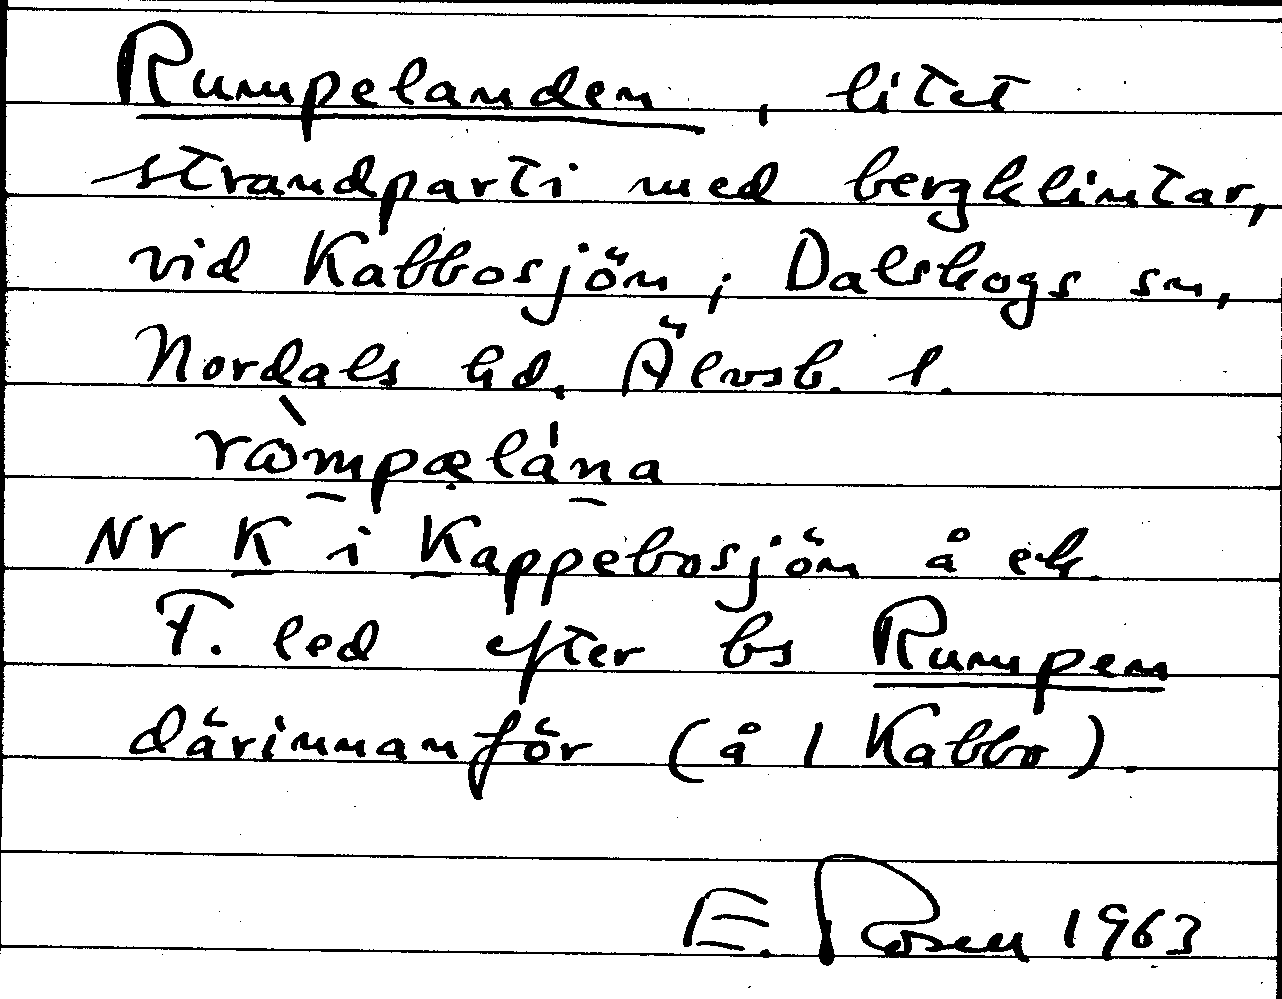 Rumpelanden, litet
strandparti med bergklintar,
vid Kabbosjön, Dalskogs sn,
Nordals hd. Älvsb. l.
ròmpælána
NV K i Kappebosjön å ek.
F. led efter bs Rumpen
därinnanför (å 1 Kabbo).
E. Rosell 1963